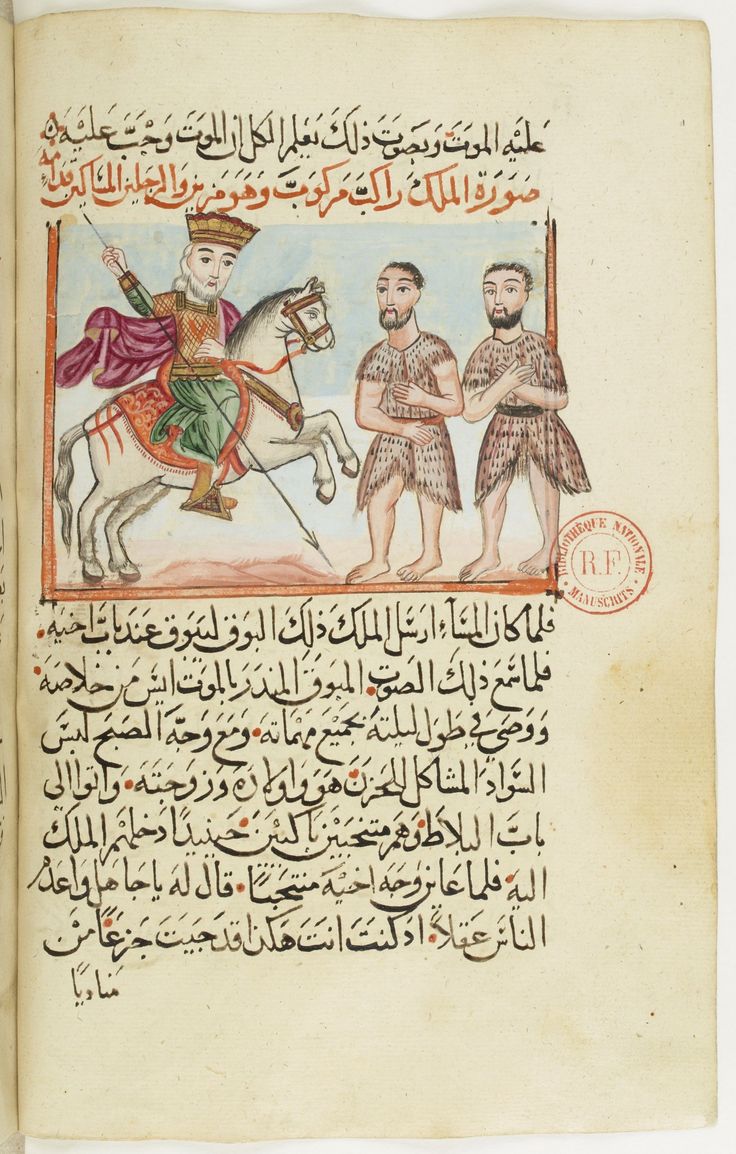 عليه الموت وبصوت ذلك يعلم الكل ان الموت وجب عليه
صورة الملك راكب مركوب وهو مزين والرجلين المساكين قدامه
فلما كان المسآء ارسل الملك ذلك البوق ليبوق عند باب اخيه
فلما سمع ذلك الصوت المبوق المندر بالموت ايس من خلاصه
ووصى في طول ليلته بجميع مهماته ومع وجه الصبح لبس
السواد المشاكل للحزن هو واولاده وزوجته واتوا الى
باب البلاط وهم منتحبين باكيين حينيدا دخلهم الملك
اليه فلما عاين وجه اخيه منتحبًا قال له يا جاهل واعدم
الناس عقلاً اد كنت انت هكذا قد جيت جزعًا من
مناديًا
BIBLIOTHÈQUE NATIONALE
R.F.
MANUSCRITS